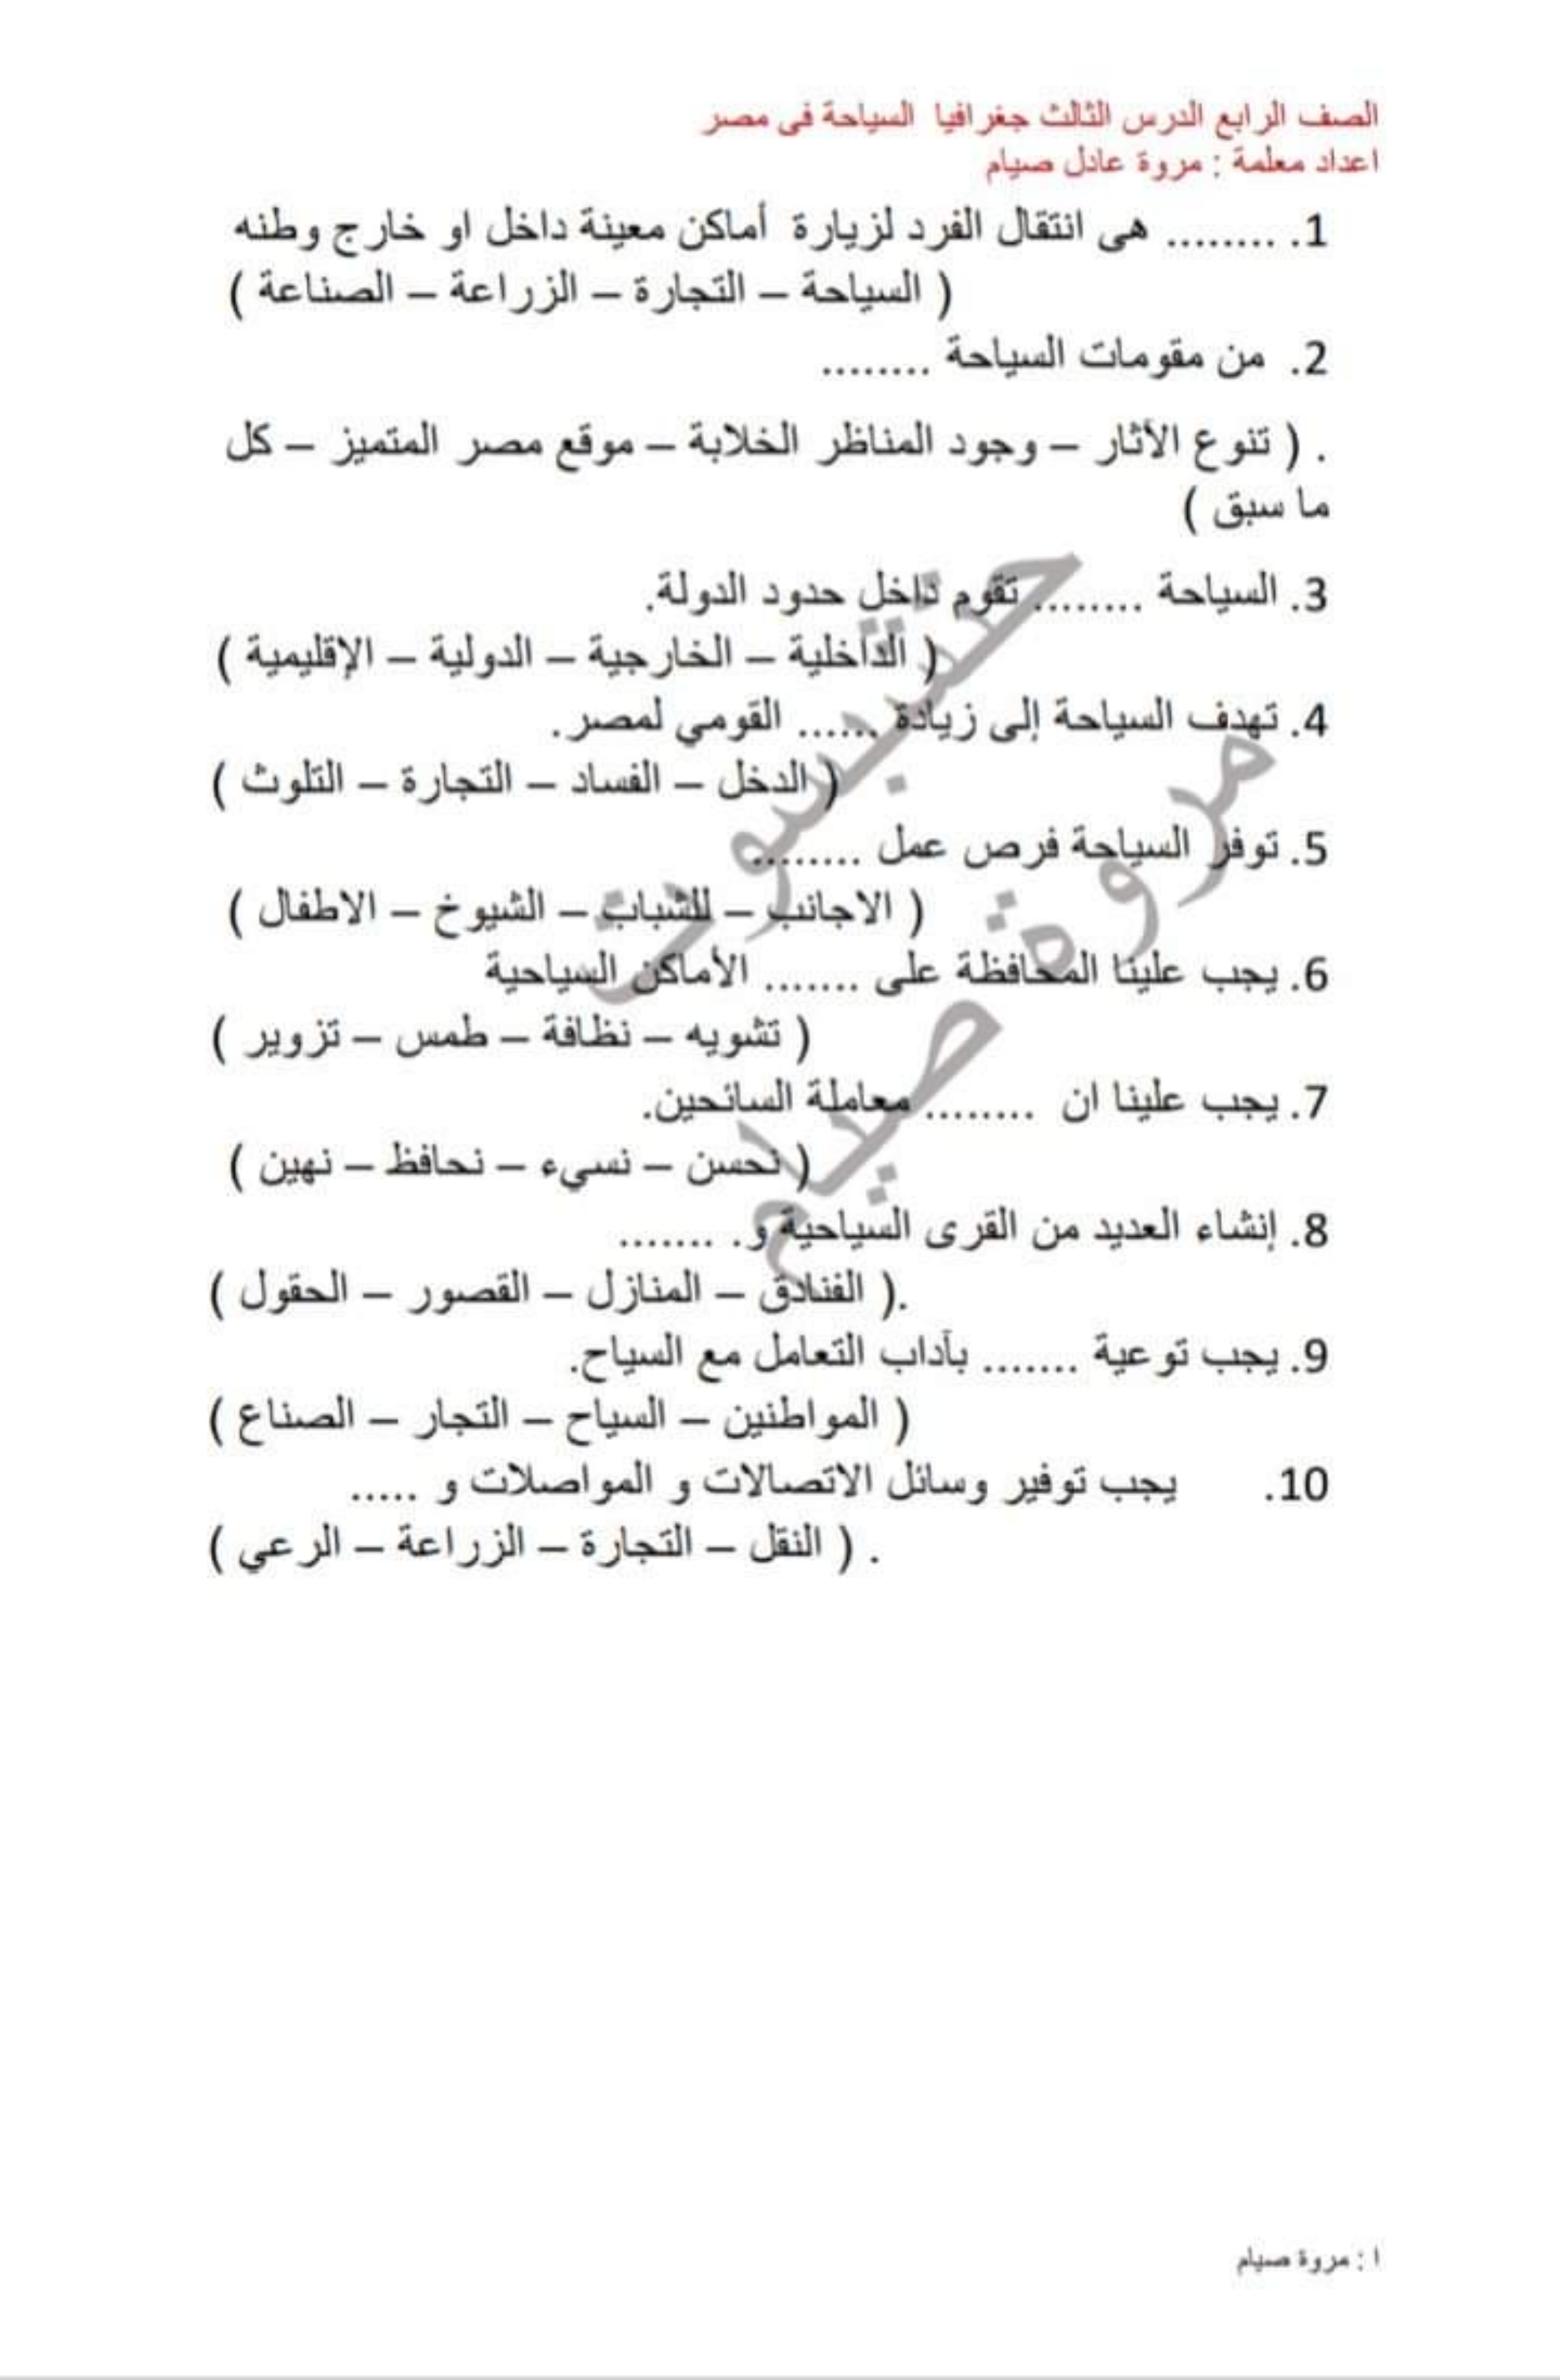 الصف الرابع الدرس الثالث جغرافيا السياحة فى مصر
اعداد معلمة : مروة عادل صيام
1. ........ هى انتقال الفرد لزيارة أماكن معينة داخل او خارج وطنه
( السياحة – التجارة – الزراعة – الصناعة )
2. من مقومات السياحة ........
. ( تنوع الآثار – وجود المناظر الخلابة – موقع مصر المتميز – كل
ما سبق )
3. السياحة ........ تقوم داخل حدود الدولة.
( الداخلية – الخارجية – الدولية – الإقليمية )
4. تهدف السياحة إلى زيادة ...... القومي لمصر.
( الدخل – الفساد – التجارة – التلوث )
5. توفر السياحة فرص عمل ........
( الاجانب – للشباب – الشيوخ – الاطفال )
6. يجب علينا المحافظة على ....... الأماكن السياحية
( تشويه – نظافة – طمس – تزوير )
7. يجب علينا ان ........ معاملة السائحين.
( نحسن – نسيء – نحافظ – نهين )
8. إنشاء العديد من القرى السياحية و. .......
.( الفنادق – المنازل – القصور – الحقول )
9. يجب توعية ....... بآداب التعامل مع السياح.
( المواطنين – السياح – التجار – الصناع )
10. يجب توفير وسائل الاتصالات و المواصلات و .....
. ( النقل – التجارة – الزراعة – الرعي )
مروة صيام
ا : مروة صيام